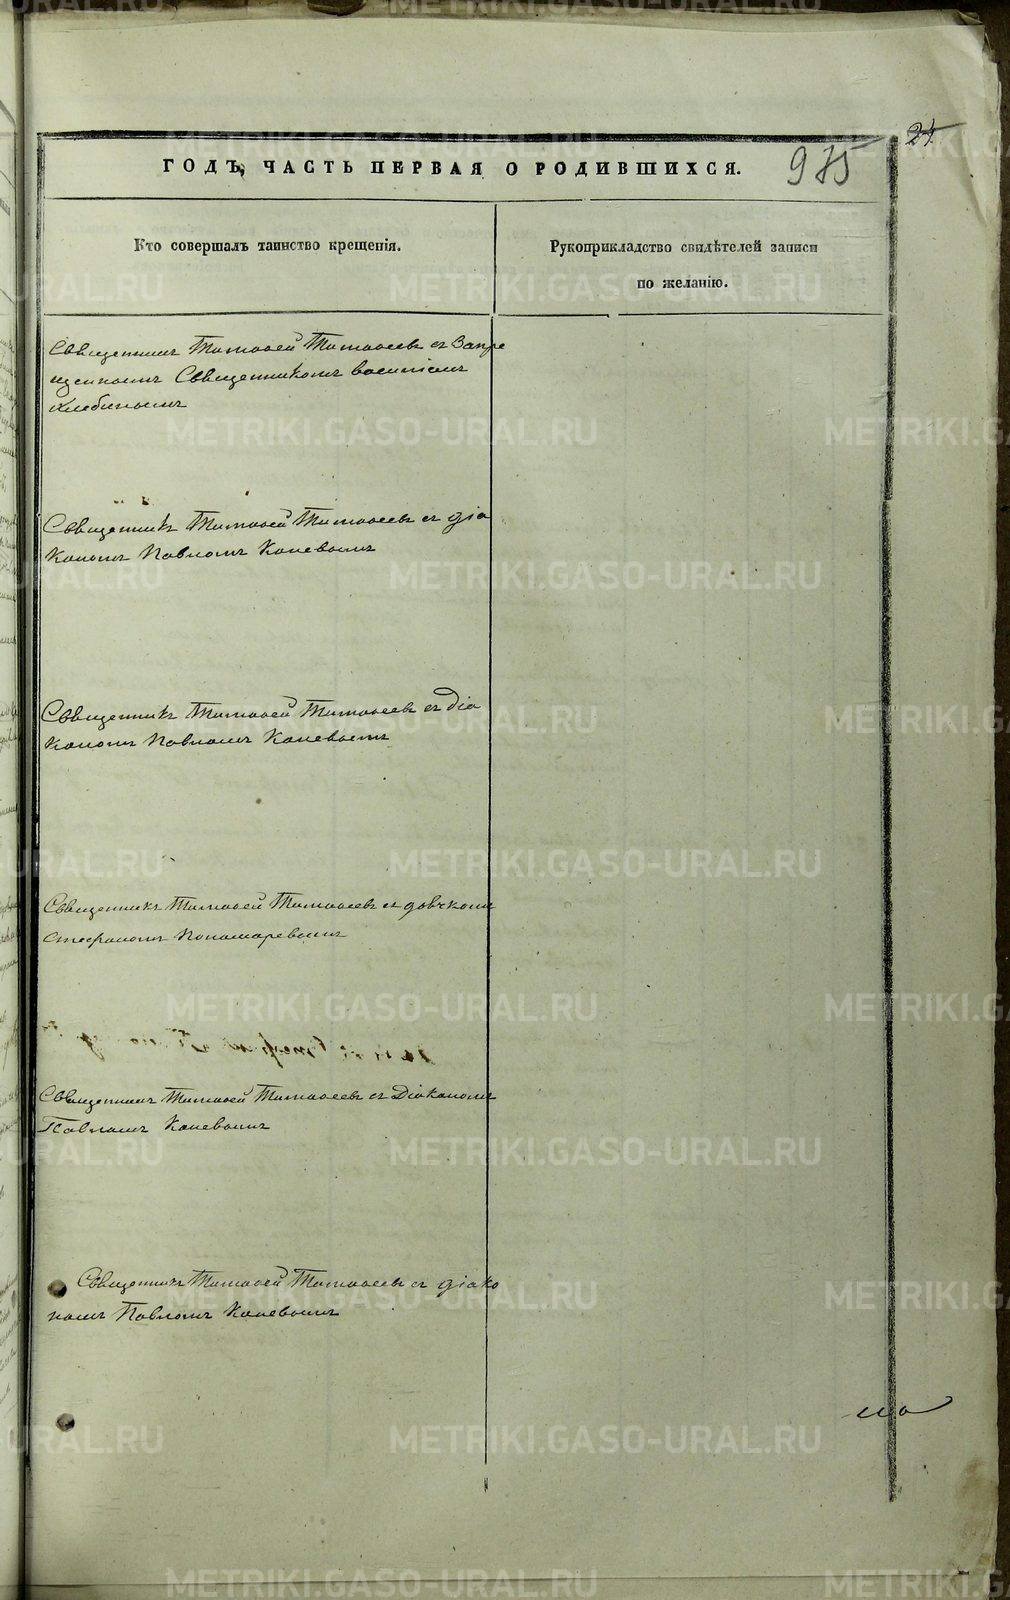 24
ГОДЪ, ЧАСТЬ ПЕРВАЯ О РОДИВШИХСЯ. 975
Кто совершалъ таинство крещенія.
Рукоприкладство свидѣтелей записи
по желанію.
Священникъ Тимофей Тимофеевъ съ Запре
щеннымъ Священникомъ Василіемъ
Хлебинымъ
Священникъ Тимофей Тимофеевъ съ діа
кономъ Павломъ Каневымъ
Священникъ Тимофей Тимофеевъ съ діа
кономъ Павломъ Каневымъ
Священникъ Тимофей Тимофеевъ съ дьячкомъ
Стефаномъ Пономаревымъ
Священникъ Тимофей Тимофеевъ съ Діакономъ
Павломъ Каневымъ
Священникъ Тимофей Тимофеевъ съ діако
номъ Павломъ Каневымъ
METRIKI.GASO-URAL.RU